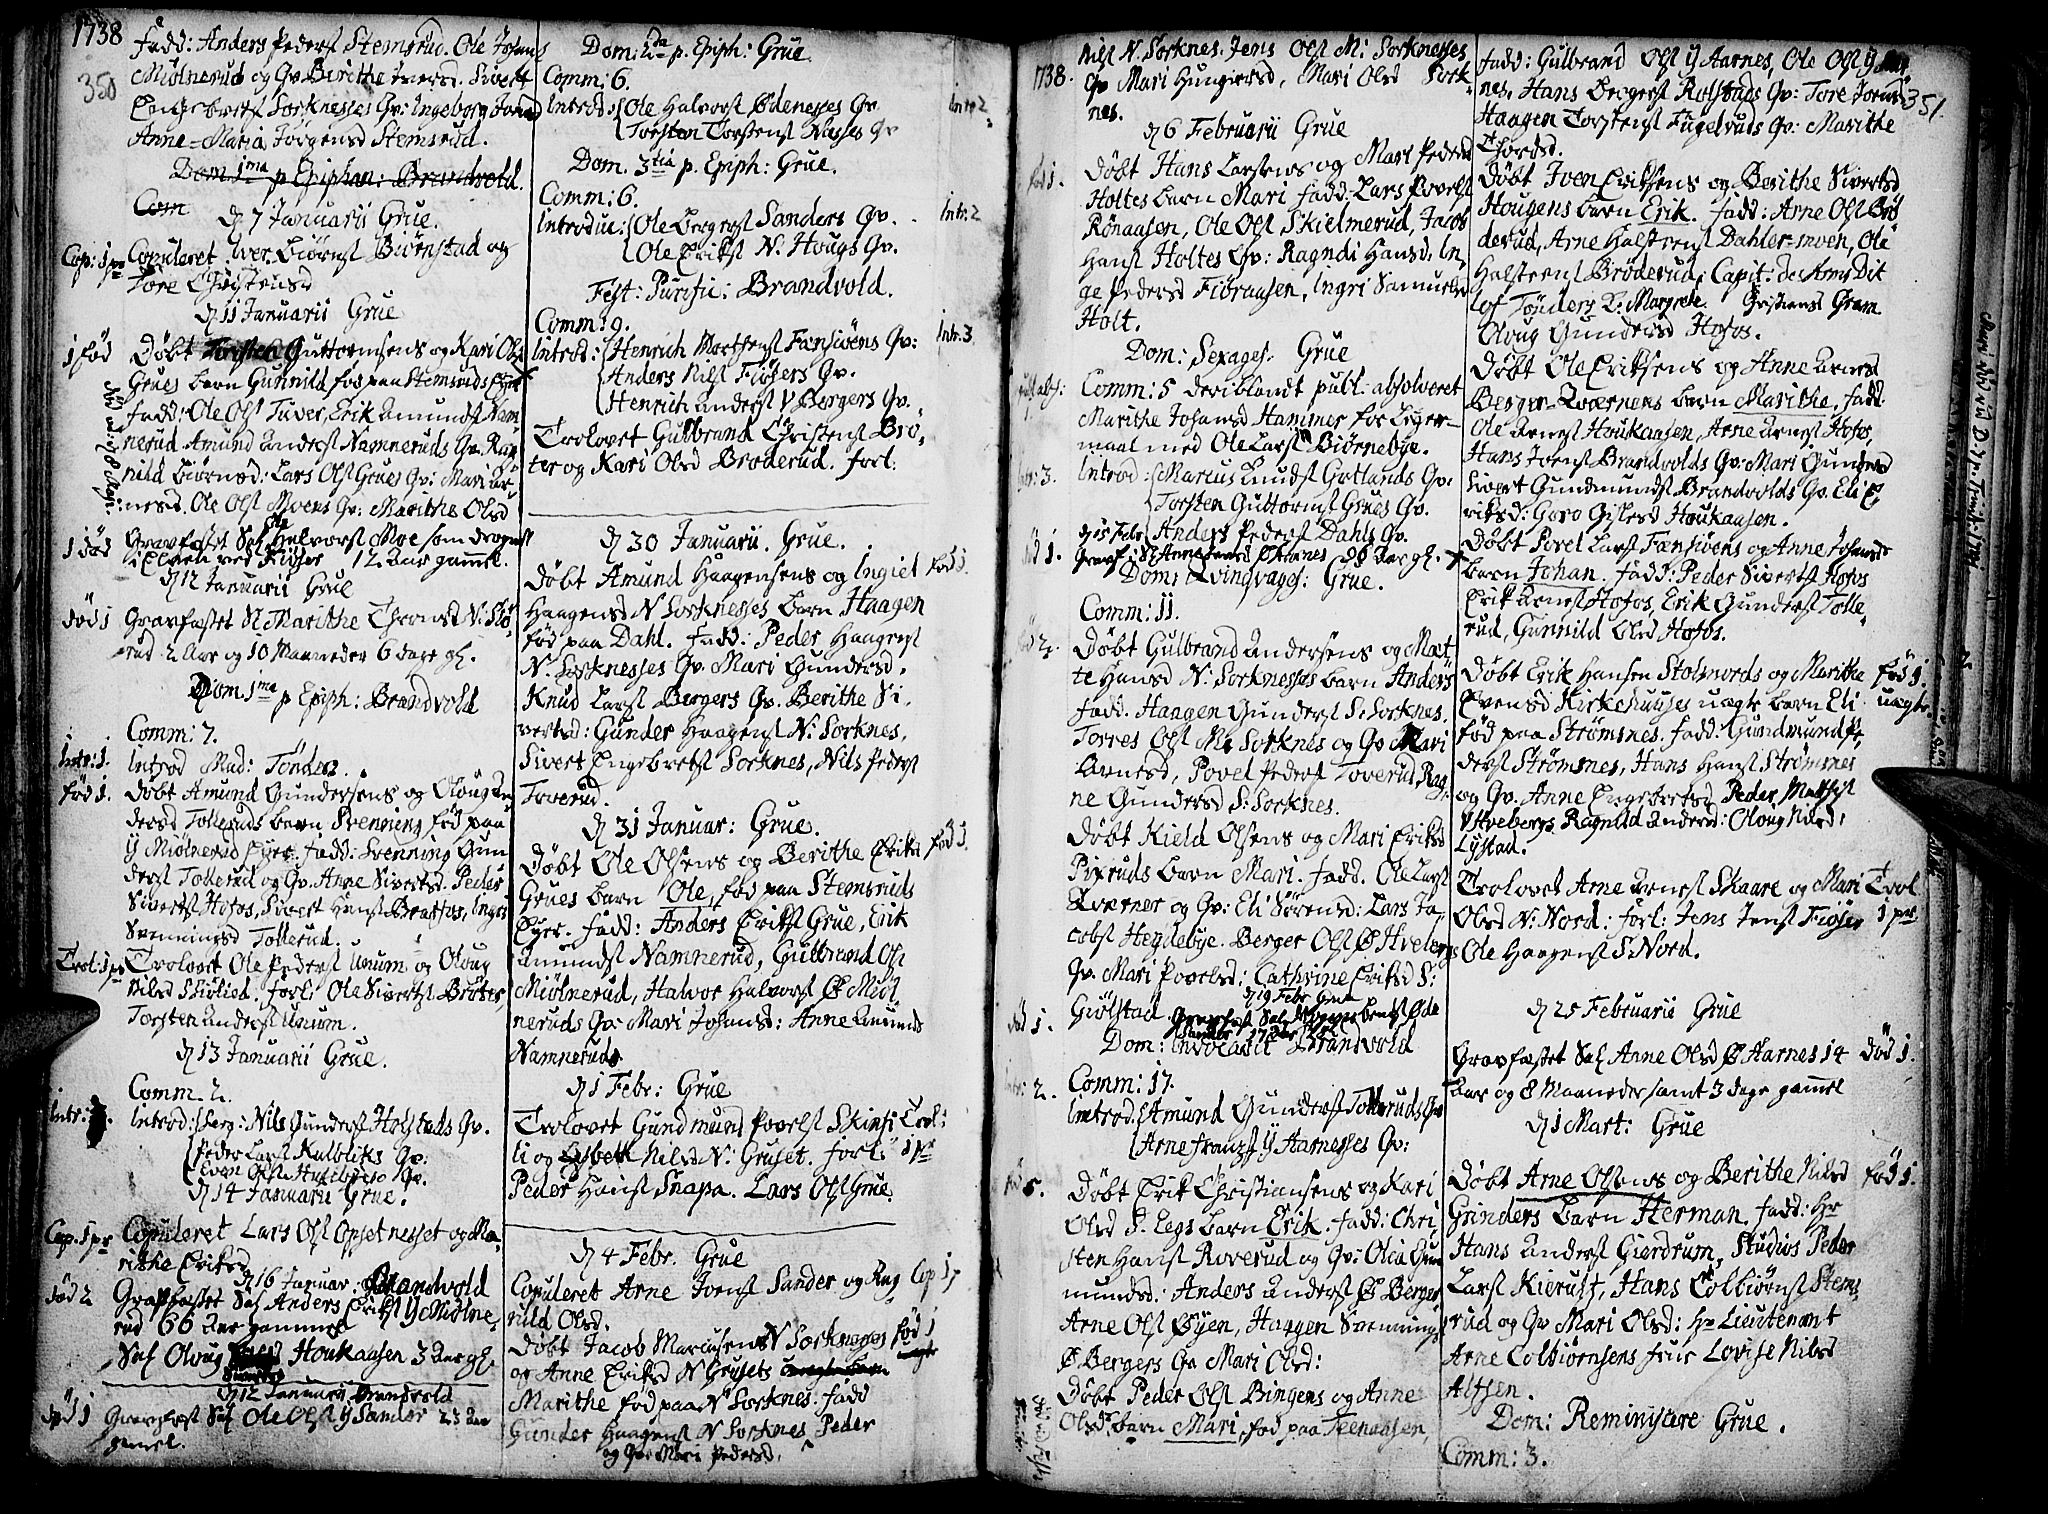 1738
350
fadd: Anders Peders. Stemsrud. Ole Johans
Miölnerud og Qv. Berithe Iversd. Sivert
Engebrets. Sorknesses Qv: Ingeborg
Anne-Maria Jörgensd Stemsrud.
Dom. 1ma p Epiphan: Brandvold.
Com
d 7 Januarii Grue.
Cop: 1 pr
Copuleret Iver Biörns. Biörnstad og
Tore Christensd
d 11 Januarii Grue
1 föd
Döbt Torsten Guttormsens og Kari Ols
Grues barn Gunnild föd paa Stemsruds Eyer
fadd: Ole Ols. Tuver, Erik Amunds. Nam-
nerud Amund Anders. Namneruds Qv. Rag-
nild Biörnsd: Lars Ols. Grues Qv: Mari Ar-
nesd. Ole Ols. Moens Qv: Marithe Olsd
1 död
Gravfæstet Sal. Ole Halvors. Moe som druknet
i Elven ved Fiöser 12 Aar gammel.
d 12 Januarii Grue
död 1
Gravfæstet Sl Marithe Thronsd N: Slö-
rud 2 Aar og 10 Maaneder 6 dage gl.
Dom. 1ma p Epiph: Brandvold
Comm: 7.
Intr: 1.
Introd Mad: Tönder.
föd 1.
Döbt Amund Gundersens og Oloug An-
dersd Tolleruds barn Svenning föd paa
Y Miölnerud Eyer. fadd: Svenning Gun
ders. Tollerud og Qv. Anne Sivertsd. Peder
Siverts. Hofos, Sivert Hans. Bratfos, Inger
Svenningsd Tollerud.
Trol: 1 pr
Trolovet Ole Peders. Unum og Oloug
Nilsd Skiölied. forl: Ole Siverts. Bröter,
Torsten Anders. Unum.
d 13 Januarii Grue.
Comm. 2.
Intr: 3.
Introd: Serg: Nils Gunders. Holstads Qv.
Peder Lars. Kulbliks Qv:
Even Ols. Qv.
d 14 Januarii Grue.
Cop. 1 pr
Copuleret Lars Ols. Opsetnesset og Ma-
rithe Eriksd
d 16 Januar: Brandvold
död 2
Gravfæstet Sal Anders Eriks. Y Miölne-
rud 66 Aar gammel
Sal Oloug Houkaasen 3 Aar gl
d 12 Januarii Brandvold
död 1
Gravfæst Sal Ole Ols. Y Sander 23 Aar
gamel.
Dom: 2da p. Epiph: Grue.
Comm: 6.
Introd: Ole Halvors. Ödenesses Qv
Intr 2
Torsten Torstens. Næses Qv
Dom. 3tia p. Epiph: Grue.
Comm: 6.
Introdu: Ole Bergers. Sanders Qv.
Intr. 2
Ole Eriks. N. Hougs Qv.
Fest: Purific: Brandvold.
Comm: 9.
Introd: Henrich Mortens. Fænsiöens Qv:
Intr. 3
Anders Nils. Fiösers Qv.
Henrich Anders. V Bergers Qv.
Trolovet Gulbrand Christens. Brö-
ter og Kari Olsd Broderud. forl:
d 30 Januarii. Grue.
Döbt Amund Haagensens og Ingier
föd 1
Haagensd N Sorknesses barn Haagen
föd paa Dahl. fadd: Peder Haagens.
N. Sorknesses Qv. Mari Gundersd.
Knud Lars. Bergers Qv. Berithe Si-
vertsd: Gunder Haagens. N: Sorknes,
Sivert Engebrets. Sorknes, Nils Peders.
Toverud.
d 31 Januar: Grue.
Döbt Ole Olsens og Berithe Eriksd
föd 1.
Grues barn Ole, föd paa Stemsruds
Eyer. fadd: Anders Eriks. Grue, Erik
Amunds. Namnerud, Gulbrand Ols.
Miölnerud, Halvor Halvors. Ö Miöl
neruds Qv. Mari Johansd: Anne Amunds
Namnerud
d 1 Febr: Grue
Trolovet Gundmund Povels. Skinsi
Trol:
li og Lisbett Nilsd N: Gruset. forl:
1 pr
Peder Hans. Snapa. Lars Ols. Grue.
d 4 Febr. Grue
Copuleret Arne Ivers. Sander og Rag
Cop 1 p
nild Olsd.
Döbt Jacob Marcusens N Sorknesses
föd 1
og Anne Eriksd N Grusets uægte barn
uægte
Marithe föd paa N Sorknes. fadd
Gunder Haagens. N Sorknes, Peder
og Qv: Mari Pedersd.
1738.
Nils. N. Sorknes. Jens Ols. M: Sorknesses
Qv Mari Hungersd, Mari Olsd Sork-
nes.
d 6 Februarii Grue
föd 1.
Döbt Hans Larsens og Mari Pedersd
Holtes barn Mari fadd: Lars Povels.
Rönaasen, Ole Ols. Skielmerud, Jacob
Hans. Holtes Qv: Ragndi Hansd. In-
ge Pedersd Fiöraasen, Ingri Samuelsd
Holt.
Dom: Sexages. Grue
publ: abs:
Comm: 5 deriblandt publ: absolveret
Marithe Johansd Hammer for Leger-
maal med Ole Lars. Biörnebye.
Intr: 3.
Introd: Marcus Knuds. Gotlands Qv:
Torsten Guttorms. Grues Qv.
Anders Peders. Dahls Qv.
död 1.
d 15 Febr Gravf: Sl Anne 96 Aar gl.
Dom: Qvinqvages: Grue.
Comm: 11.
föd 2.
Döbt Gulbrand Andersens og Mæt-
te Hansd N: Sorknesses barn Anders
fadd. Haagen Gunders. S: Sorknes.
Torres Ols. M: Sorknes og Qv Mari
Arnesd, Povel Peders. Toverud, Rag-
ne Gundersd S: Sorknes.
Döbt Kield Olsens og Mari Eriksd
Pixruds barn Mari. fadd. Ole Lars.
Qværner og Qv: Eli Sörensd: Lars Ja-
cobs. Heydebye. Berger Ols. Ö Hveberg
Qv. Mari Povelsd: Cathrine Eriksd S:
Giölstad.
d 19 Febr. Grue
död 1.
Gravfæst Sal Öde
Sander 17 Aar
Dom: Invocavit Brandvold
Comm: 17.
Intr: 2.
Introd. Amund Gunders. Tolleruds Qv
Arne Franz. Y Aarnesses Qv:
föd 5.
Döbt Erik Christiansens og Kari
Olsd S. Legs barn Erik. fadd: Chri-
sten Hans. Roverud og Qv: Olia Gun
mundsd. Anders Anders. Ö Berger
Arne Ols. Öyen, Haagen Svennings.
Ö. Bergers Qv Mari Olsd:
Döbt Peder Ols. Bingens og Anne
Olsds barn Mari, föd paa Teenaasen,
351.
fadd: Gulbrand Ols. Y Aarnes, Ole Ols. Y Aar-
nes. Hans Bergers. Rolstads Qv: Tore
Haagen Torstens. Fugelruds Qv: Marithe
Thordsd.
Döbt Iven Eriksens og Berithe Sivertsd
Hougens barn Erik. fadd: Arne Ols. Brö
derud, Arne Halsteens. Dahler-moen, Ole
Halsteens. Bröderud, Capit: de Arms Dit
lof Tönders K: Margrete Christens Gram
Oloug Gundersd Hofos.
Döbt Ole Eriksens og Anne Arnesd
Berger-Qværnens barn Marithe. fadd:
Ole Arnes. Houkaasen, Arne Arnes. Hofos,
Hans Ivers. Brandvolds Qv: Mari Gundersd
Sivert Gundmunds. Brandvolds Qv. Eli E-
riksd: Goro Gislesd Houkaasen.
Döbt Povel Lars. Fænsiöens og Anne Johansd
barn Johan. fadd: Peder Siverts. Hofos
Erik Arnes. Hofos, Erik Gunders. Tolle-
rud, Gunnild Olsd Hofos.
Döbt Erik Hansen Stolsnords og Marithe
föd 1.
Evensd Kirkehuuses uægte barn Eli
uægte.
föd paa Strömsnes. fadd: Gundmund Pe-
ders. Strömsnes, Hans Hans. Strömsnes
og Qv. Anne Engebretsd Peder Mattis.
V Hvebergs Ragnild Andersd: Oloug Nilsd.
Lystad.
Trolovet Arne Arnes. Skaare og Mari
Trol
Olsd N: Nord. forl: Jens Jens. Fiöser
1 pr.
Ole Haagens. S: Nord.
d 25 Februarii Grue
Gravfæstet Sal Anne Olsd Ö Aarnes 14
död 1.
Aar og 8 Maaneder samt 3 dage gammel
d 1 Mart: Grue
Döbt Arne Olsens og Berithe Nilsd
föd 1.
Grinders barn Herman. fadd: Hr
Hans Anders. Gierdrum, Studios Peder
Lars. Kierulf, Hans Colbiörns. Stems-
rud og Qv Mari Olsd: Hr Lieutenant
Arne Colbiörnsens frue Lovise Nilsd
Altsen.
Dom: Reminiscere Grue.
Comm: 3.